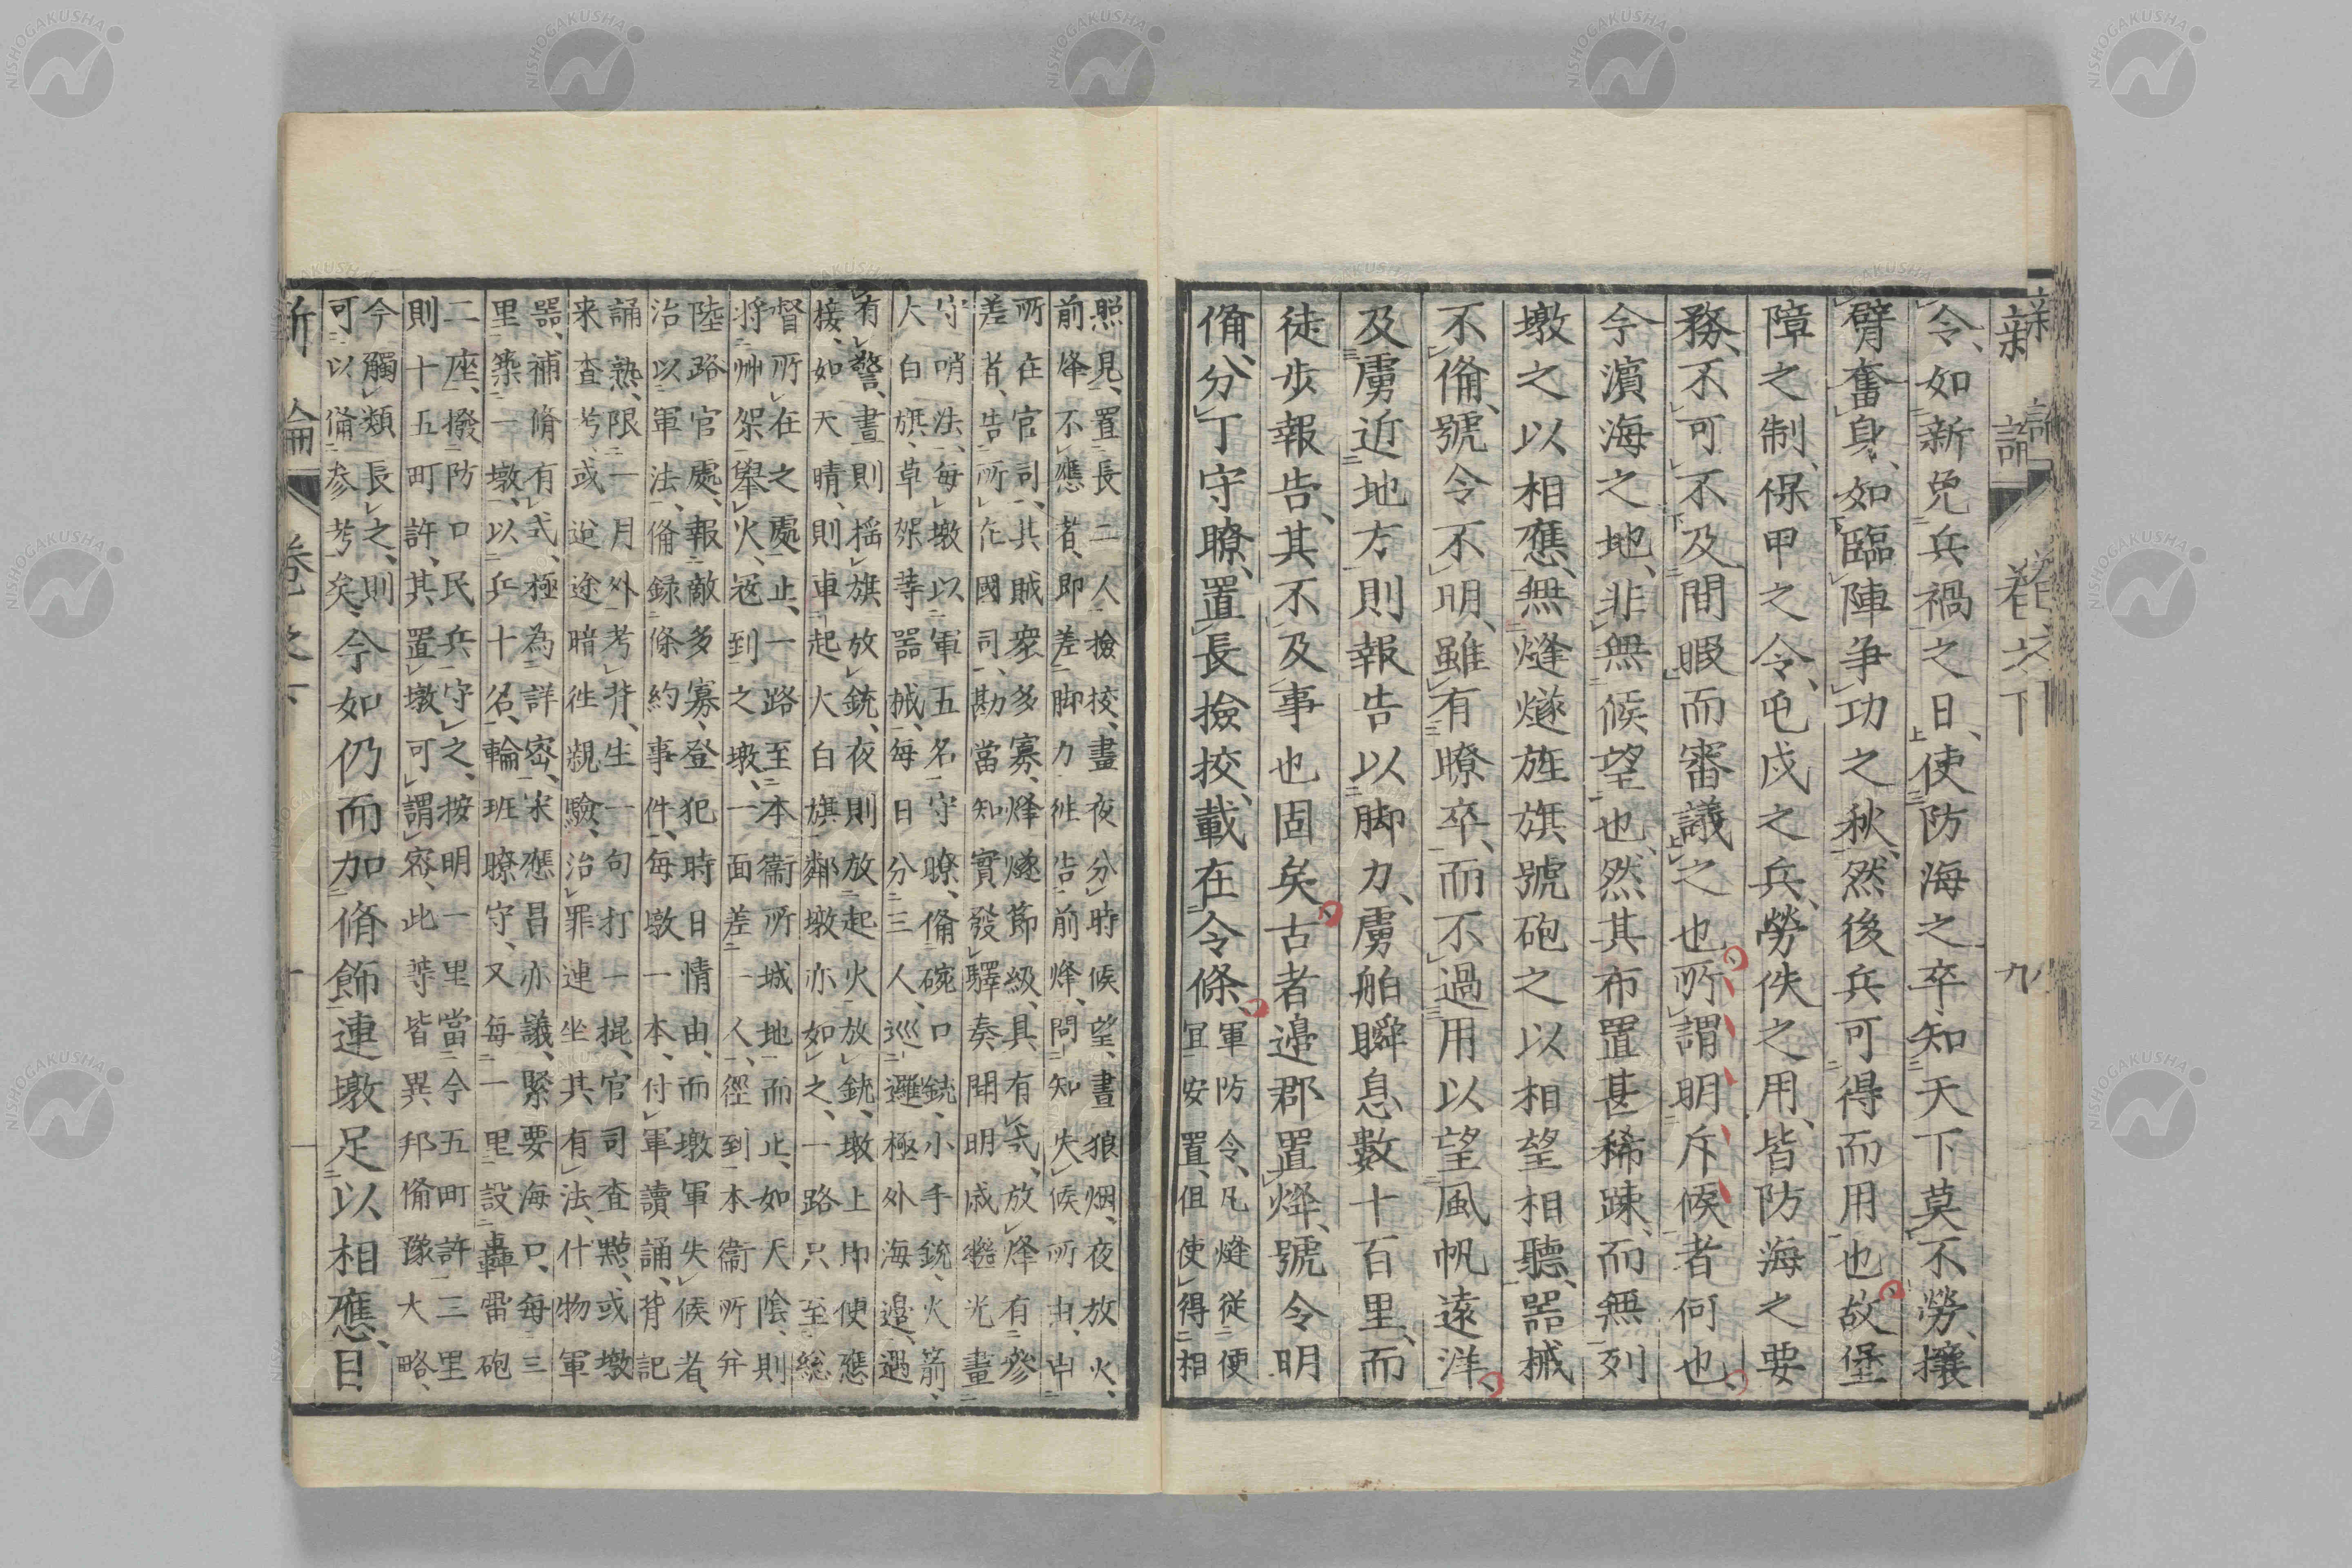 新論 卷之下 九
令、如新免兵禍之日、使防海之卒、知天下莫不勞、攘
臂奮身、如臨陣爭功之秋、然後兵可得而用也故堡
障之制、保甲之令、屯戍之兵、勞佚之用、皆防海之要
務、不可不及間暇而審議之也所謂明斥候者何也、
今濵海之地、非無候望也、然其布置甚稀踈、而無列
墩之以相應、無㷭燧旌旗號砲之以相望相聽、器械
不偹、號令不明、雖有瞭卒、而不過用以望風帆遠洋、
及虜近地方則報告以脚力、虜舶瞬息數十百里、而
徒步報告、其不及事也固矣古者邉郡置㷭、號令明
偹、分丁守瞭、置長撿挍、載在令條、
軍防令、凡㷭從便
宜安置、但使得相
照見、置長二人撿挍、晝夜分時候望、晝狼烟、夜放火、
前烽不應者、即差脚力徃告前烽、問知失候所由、申
所在官司、其賊衆多寡、烽燧節級、具有式、放烽有參
差者、告所在國司、勘當知實發驛奏聞明戚繼光畫
守哨法、每墩以軍五名守瞭、偹碗口銃、小手銃、火箭、
大白旗、草架等器械、每日分三人、巡邏極外海邉、遇
有警、晝則揺旗放銃、夜則放起火放銃、墩上即便應
接、如天晴、則車起火白旗鄰墩亦如之、一路只至総
督所在之處止、一路至本衞所城地而止、如天陰、則
將艸架舉火、冦到之墩、一面差一人、徑到本衞所并
陸路官處、報敵多寡、登犯時日情由、而墩軍失候者、
治以軍法、偹録條約事件、每墩一本、付軍讀誦、背記
誦熟、限一月外考背、生一句打一棍、官司查㸃、或墩
来查考、或逆途暗徃親驗、治罪連坐其有法、什物軍
器、補脩有式、極為詳宻、宋應昌亦議、緊要海口、每三
里築一墩、以兵十名、輪班瞭守、又每一里設轟雷砲
二座、撥防口民兵守之、按明一里當今五町許三里
則十五町許、其置墩可謂宻、此等皆異邦偹豫大略、
今觸類長之、則
可以偹参考矣、
今如仍而加脩飾連墩足以相應、目
新論 卷之下